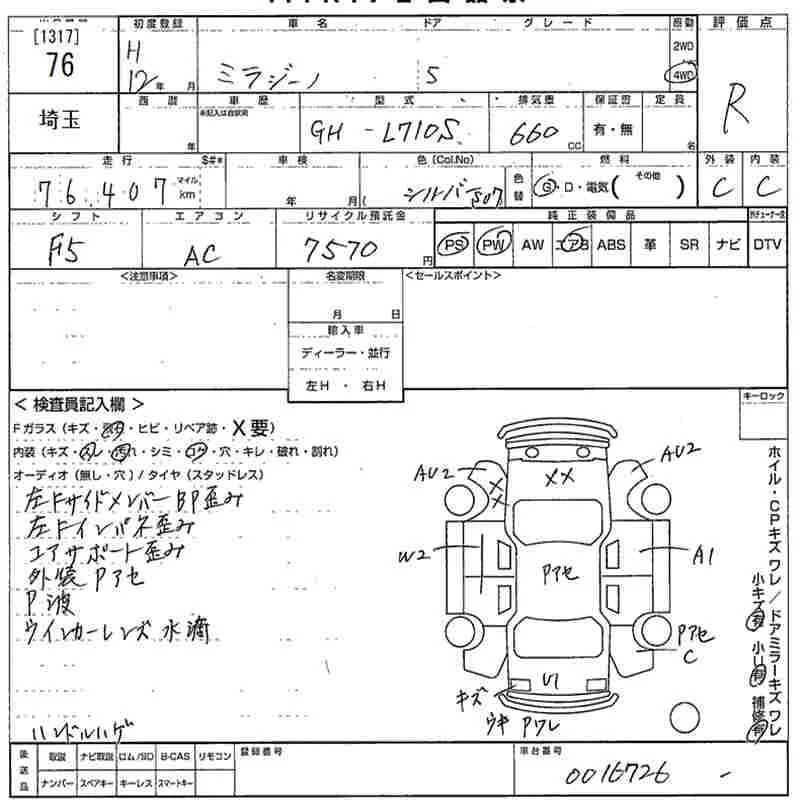 [1317]
76
埼玉
初度登録
H
12年 月
車名
ミラジーノ
ドア
5
グレード
駆動
2WD
4WD
評価点
R
西暦
年
車歴
※記入は自家用
型式
GH - L710S
排気量
660 cc
保証書
有・無
定員
名
走行 $#*
76,407 マイル km
車検
年 月(
色(Col.No)
シルバ S07
色替
燃料
G・D・電気( その他 )
外装
C
内装
C
シフト
F5
エアコン
AC
リサイクル預託金
7570 円
純正装備品
PS PW AW エアB ABS 革 SR ナビ DTV
<注意事項>
名変期限
月 日
輸入車
ディーラー・並行
左H・右H
<セールスポイント>
< 検査員記入欄 >
キーロック
Fガラス(キズ・ ・ヒビ・リペア跡・X要)
内装(キズ・スレ・汚れ・シミ・コゲ・穴・キレ・破れ・割れ)
オーディオ(無し・穴)/タイヤ(スタッドレス)
左FサイドメンバーBP歪み
左Fインパネ歪み
コアサポート歪み
外装Pアセ
P波
ウインカーレンズ水滴
ハンドルハゲ
AU2
XX
AU2
X
X
W2
Pアセ
A1
Pアセ
C
U1
キズ
ウキ Pワレ
ホイル・CPキズ ワレ/ドアミラーキズ ワレ
小キズ有 小U有 補修有
後送品
取説 ナビ取説 ロム/SD B-CAS リモコン
ナンバー スペアキー キーレス スマートキー
登録番号
車台番号
0016726 -